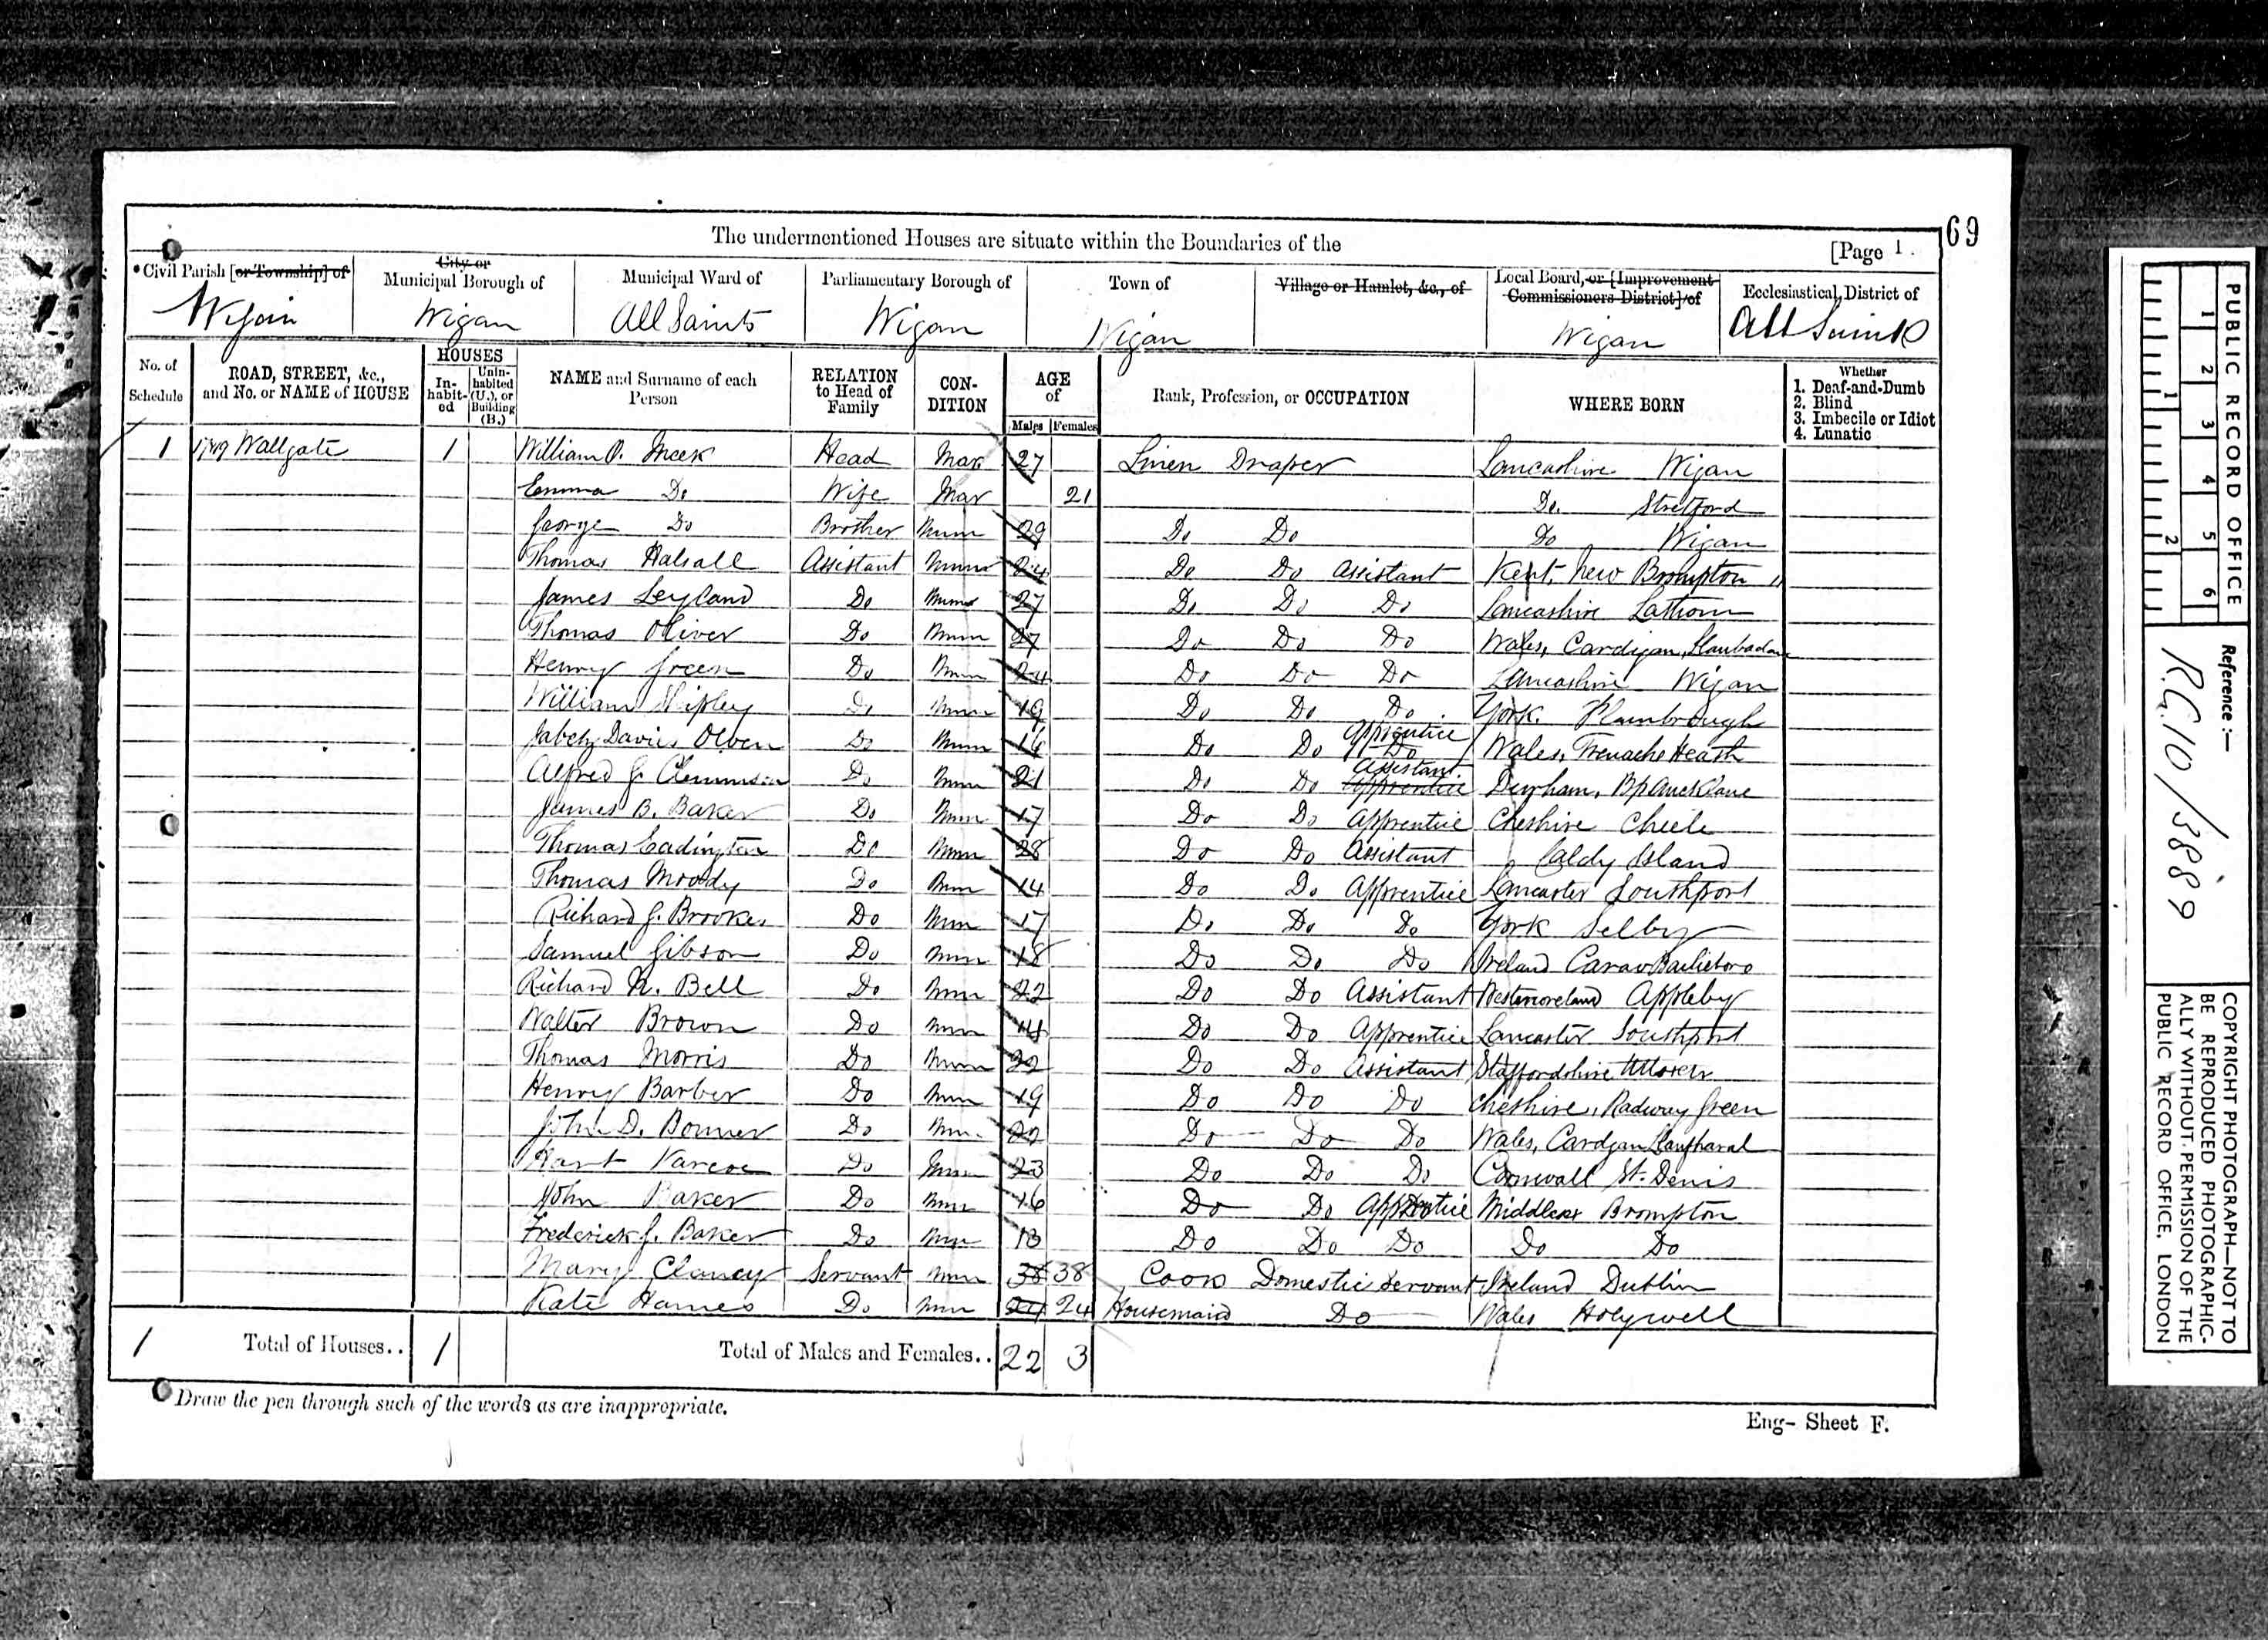 69
The undermentioned Houses are situate within the Boundaries of the
[Page 1.
Civil Parish [or Township] of
City or Municipal Borough of
Municipal Ward of
Parliamentary Borough of
Town of
Village or Hamlet, &c., of
Local Board, or [Improvement Commissioners District] of
Ecclesiastical District of
Wigan Wigan All Saints Wigan Wigan Wigan All Saints
No. of Schedule
ROAD, STREET, &c., and No. or NAME of HOUSE
HOUSES
In-habit-ed
Unin-habited (U.), or Building (B.)
NAME and Surname of each Person
RELATION to Head of Family
CON-DITION
AGE of
Males Females
Rank, Profession, or OCCUPATION
WHERE BORN
Whether
1. Deaf-and-Dumb
2. Blind
3. Imbecile or Idiot
4. Lunatic
1 Wallgate 1 William O. Meek Head Mar 27 Linen Draper Lancashire Wigan
Emma Do Wife Mar 21 Do. Stretford
George Do Brother Unm 29 Do Do Do Wigan
Thomas Halsall Assistant Unm 24 Do Do Assistant Kent. New Brompton
James Leyland Do Unm 27 Do Do Do Lancashire Lathom
Thomas Oliver Do Unm 27 Do Do Do Wales, Cardigan,
Henry Green Do Unm 24 Do Do Do Lancashire Wigan
William Shipley Do Unm 19 Do Do Do York.
Jabez Davies Olven Do Unm 16 Do Do Apprentice Do Wales, Heath
Alfred J. Clemmson Do Unm 21 Do Do Assistant Apprentice Durham,
James B. Baker Do Unm 17 Do Do Apprentice Cheshire
Thomas Do Unm 28 Do Do Assistant Caldy Island
Thomas Moody Do Unm 14 Do Do Apprentice Lancaster Southport
Richard J. Brookes Do Unm 17 Do Do Do York Selby
Samuel Gibson Do Unm 18 Do Do Do Ireland
Richard N. Bell Do Unm 22 Do Do Assistant Westmoreland Appleby
Walter Brown Do Unm 14 Do Do Apprentice Lancaster Southport
Thomas Morris Do Unm 22 Do Do Assistant Staffordshire
Henry Barber Do Unm 19 Do Do Do Cheshire, Radway Green
John D. Bonner Do Unm 22 Do Do Do Wales,
Hart Varcoe Do Unm 23 Do Do Do Cornwall St. Denis
John Baker Do Unm 16 Do Do Apprentice Middlesex Brompton
Frederick J. Baker Do Unm 13 Do Do Do Do Do
Mary Clancy Servant Unm 38 38 Cook Domestic Servant Ireland Dublin
Kate Hames Do Unm 24 24 Housemaid Do Wales Holywell
1 Total of Houses.. 1 Total of Males and Females.. 22 3
Draw the pen through such of the words as are inappropriate.
Eng- Sheet F.
PUBLIC RECORD OFFICE
1 2 3 4 5 6
1 2
Reference :—
R.G. 10/3889
COPYRIGHT PHOTOGRAPH—NOT TO
BE REPRODUCED PHOTOGRAPHIC-
ALLY WITHOUT PERMISSION OF THE
PUBLIC RECORD OFFICE, LONDON